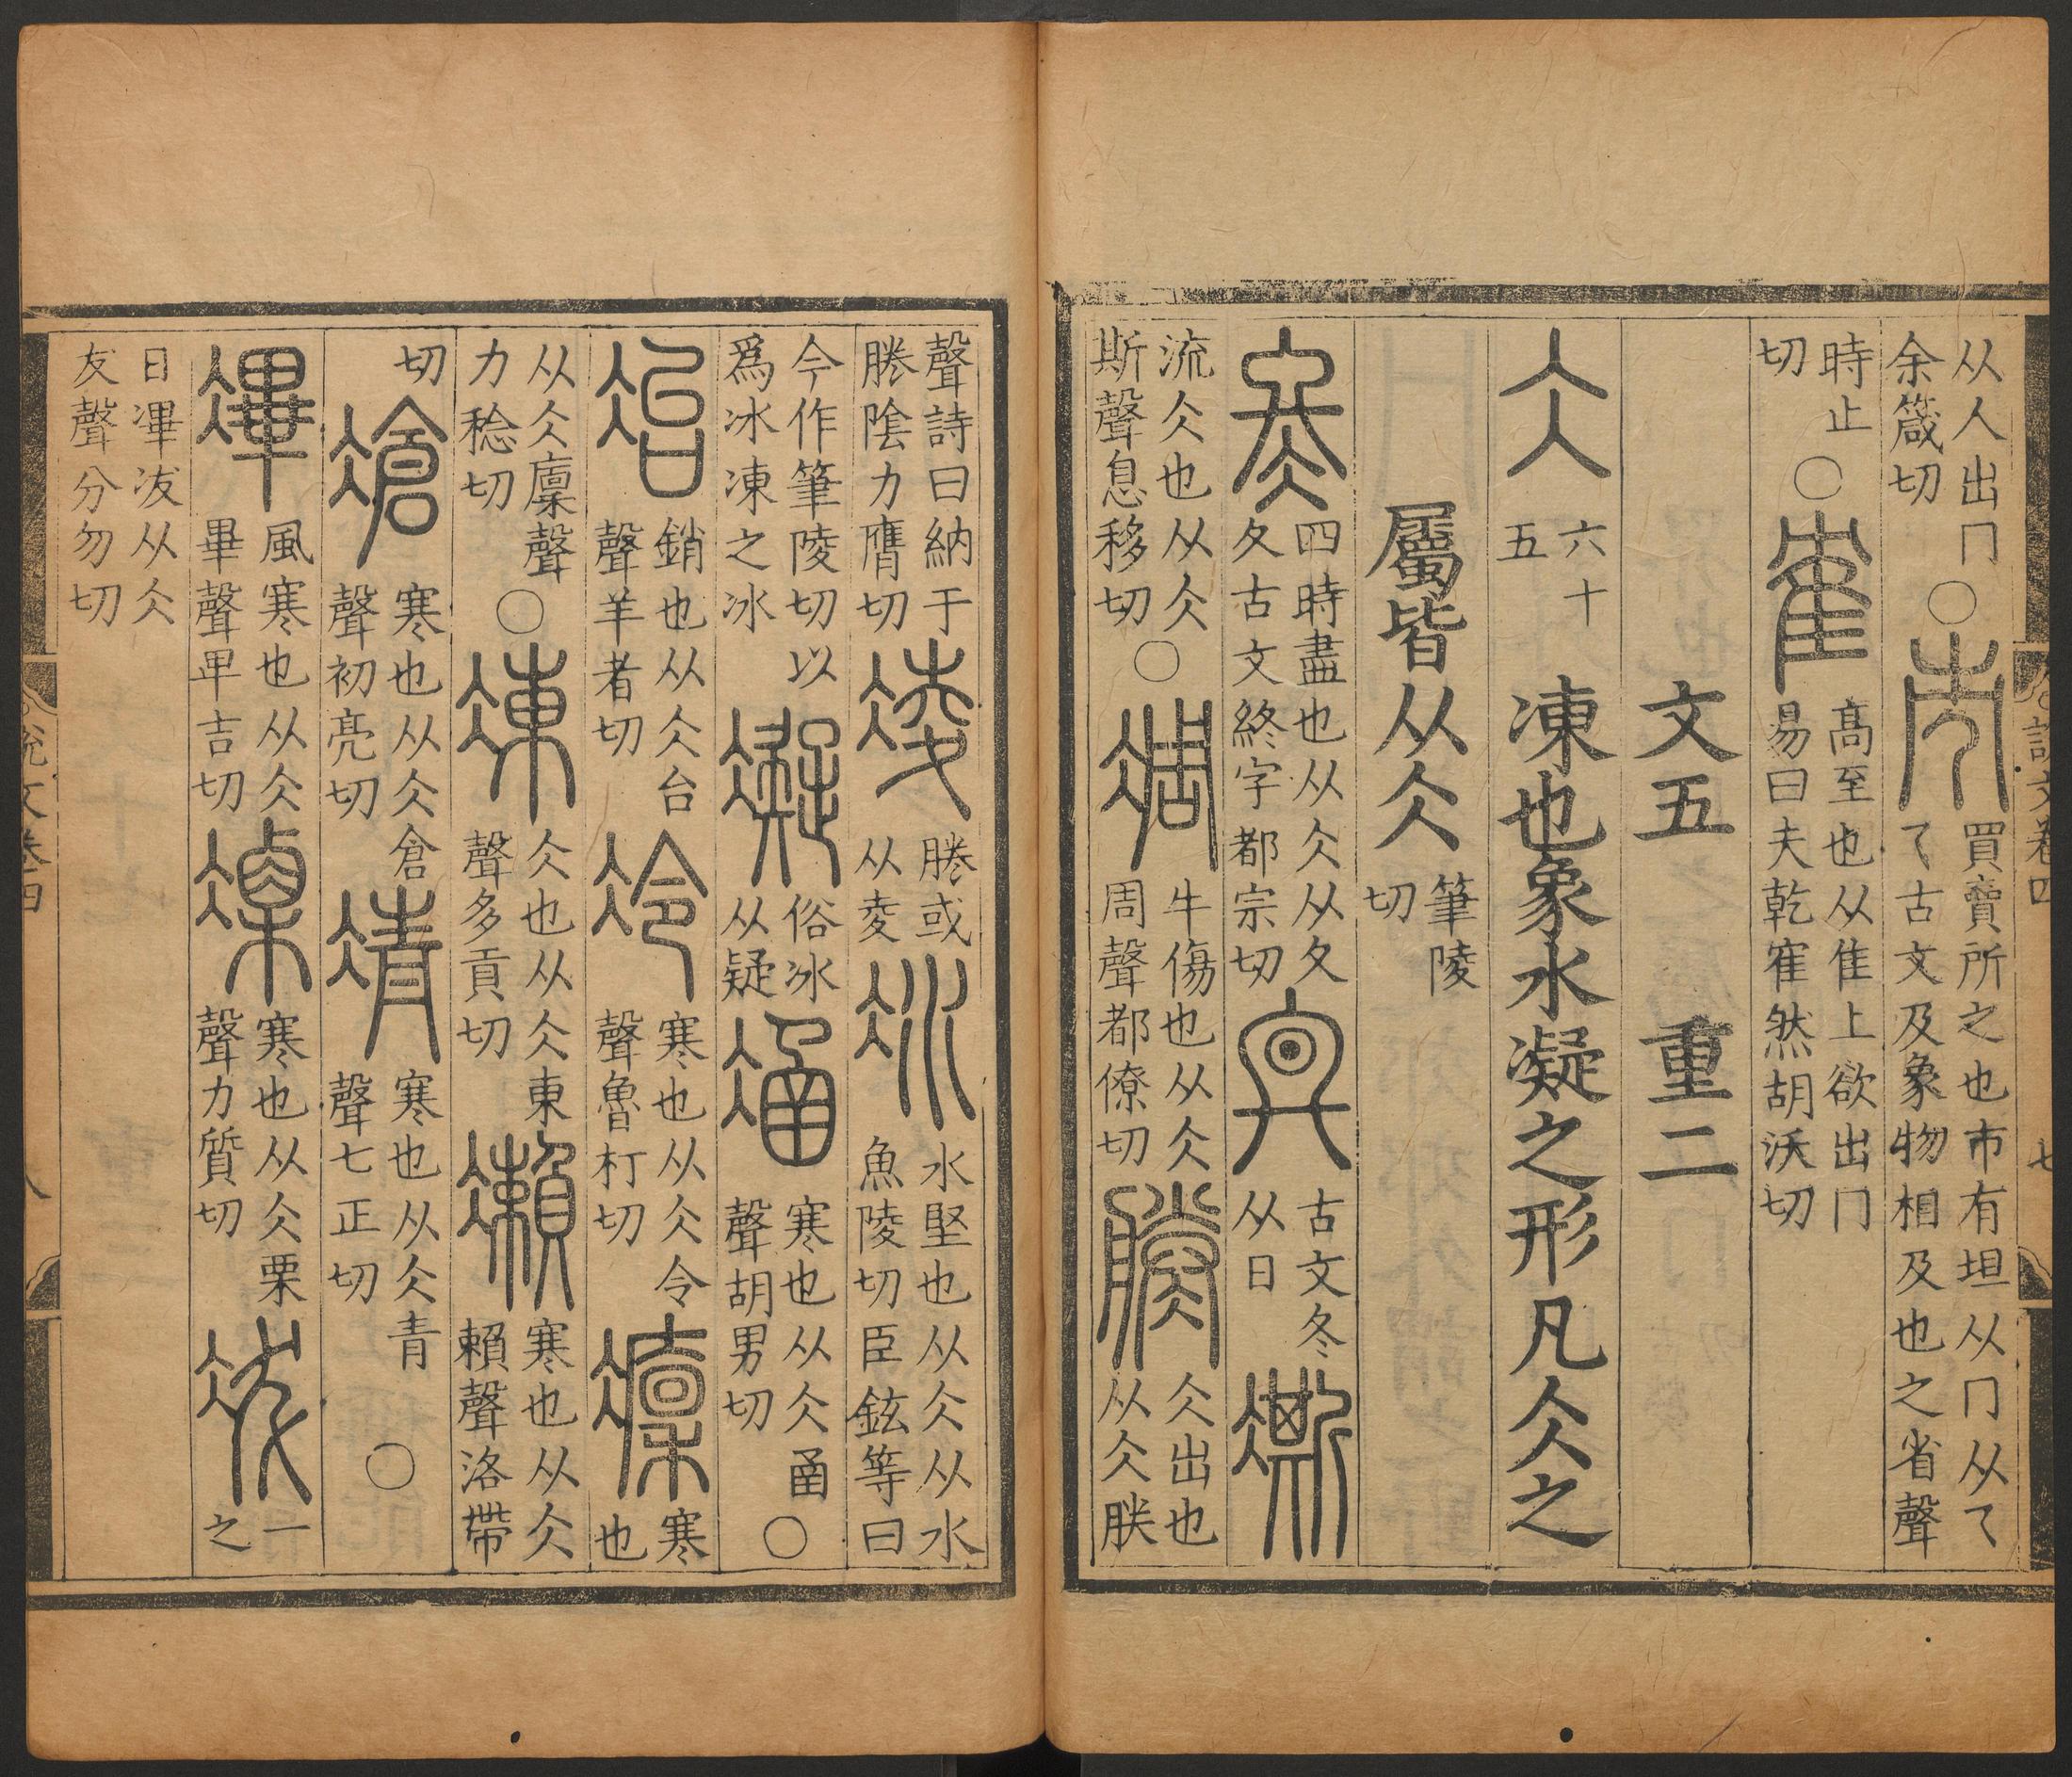 从人出冂余箴切○市買賣所之也市有坦从冂从乁乁古文及象物相及也之省聲
時止切○隺高至也从隹上欲出冂易曰夫乾隺然胡沃切
文五　重二
仌六十五凍也象水凝之形凡仌之
屬皆从仌筆陵切
冬四時盡也从仌从夂夂古文終字都宗切𠔙古文冬从日凘
流仌也从仌斯聲息移切○凋牛傷也从仌周聲都僚切𦩎仌出也从仌朕
說文卷四　七
聲詩曰納于𦩎陰力膺切凌𦩎或从夌冰水堅也从仌从水魚陵切臣鉉等曰
今作筆陵切以爲冰凍之冰凝俗冰从疑𠗙寒也从仌圅聲胡男切○
冶銷也从仌台聲羊者切冷寒也从仌令聲魯打切凜寒也
从仌廩聲力稔切○凍仌也从仌東聲多貢切𠘝寒也从仌賴聲洛帶
切凔寒也从仌倉聲初亮切凊寒也从仌青聲七正切○
㓖風寒也从仌畢聲卑吉切凓寒也从仌栗聲力質切冹一之
日㓖冹从仌犮聲分勿切
說文卷四　八